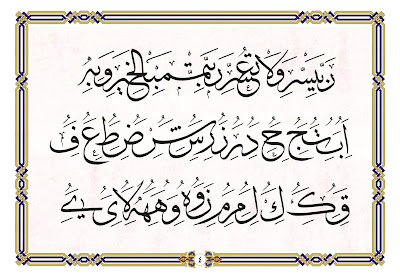 رب يسر ولا تعسر رب تمم بالخير وبه
ا ب ت ج ح د ر ز ر س ش ض ط ع ف
ق ك ك ل م ر م ز و ه و هه لا ى ے
٤